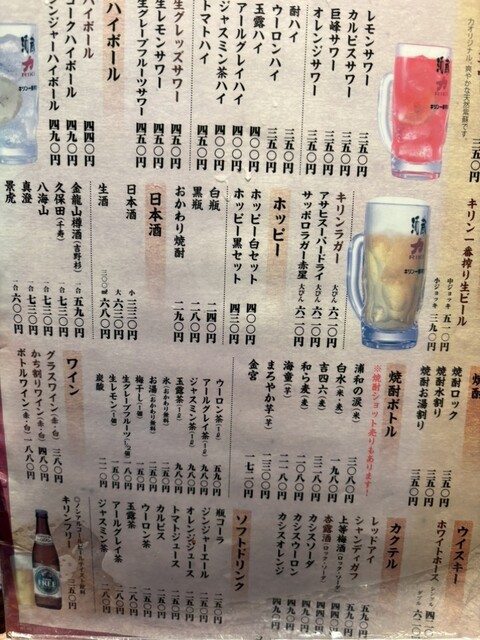 カオリジナル、爽やかな天然紫蘇です。
レモンサワー 三五〇円
カルピスサワー 三五〇円
巨峰サワー 三五〇円
オレンジサワー 三五〇円
酎ハイ
ウーロンハイ 三五〇円
玉露ハイ 三五〇円
アールグレイハイ 四〇〇円
ジャスミン茶ハイ 四〇〇円
トマトハイ 四五〇円
生グレッズサワー 四五〇円
生レモンサワー 四五〇円
生グレープフルーツサワー 四五〇円
ハイボール
ハイボール 四四〇円
コークハイボール 四九〇円
ジンジャーハイボール 四九〇円
キリン一番搾り生ビール
中ジョッキ 五一〇円
小ジョッキ 三九〇円
キリンラガー 大びん 六二〇円
アサヒスーパードライ 大びん 六二〇円
サッポロラガー赤星 大びん 六二〇円
ホッピー
ホッピー白セット 四〇〇円
ホッピー黒セット 四三〇円
白瓶 二四〇円
黒瓶 二八〇円
おかわり焼酎 二九〇円
日本酒
日本酒 小 三三〇円
大 六三〇円
生酒 三〇〇ml 六八〇円
金龍山樽酒(吉野杉) 一合 五九〇円
久保田(千寿) 一合 七三〇円
八海山 一合 七三〇円
真澄 一合 七三〇円
景虎 一合 六〇〇円
焼酎
焼酎ロック 三五〇円
焼酎水割り 三五〇円
焼酎お湯割り 三五〇円
焼酎ボトル
※焼酎ショット売りもあります!
浦和の涙(米) 三〇八〇円
白水(米・麦) 二八五〇円
吉四六(麦) 三二八〇円
和ら麦(麦)
海童(芋) 二一八〇円
まろやか芋(芋) 二三〇〇円
金宮 一七二〇円
ウーロン茶(1ℓ) 五九〇円
アールグレイ茶(1ℓ) 九八〇円
ジャスミン茶(1ℓ) 九八〇円
玉露茶(1ℓ) 九八〇円
氷(おかわり無料) 二五〇円
お湯(おかわり無料) 二五〇円
梅干し(一個) 五〇円
生グレープフルーツ(一個) 一八〇円
生レモン(一個) 一五〇円
炭酸 二一〇円
ワイン
グラスワイン(赤・白) 三八〇円
かち割りワイン(赤・白) 四八〇円
ボトルワイン(赤・白) 一八八〇円
ウイスキー
ホワイトホース シングル 四二
ダブル 六二
カクテル
レッドアイ 五九〇円
シャンディガフ 五九〇円
上等梅酒(ロック・ソーダ)
杏露酒(ロック・ソーダ) 四四〇円
カシスソーダ 四四〇円
カシスウーロン 四九〇円
カシスオレンジ 四九〇円
ソフトドリンク
瓶コーラ 二五〇円
ジンジャーエール 二五〇円
オレンジジュース 二五〇円
トマトジュース 二五〇円
カルピス 二五〇円
ウーロン茶 二五〇円
玉露茶 二八〇円
アールグレイ茶 二八〇円
ジャスミン茶 二八〇円
○ノンアルコールビールテイスト飲料
キリンフリー 三五〇円